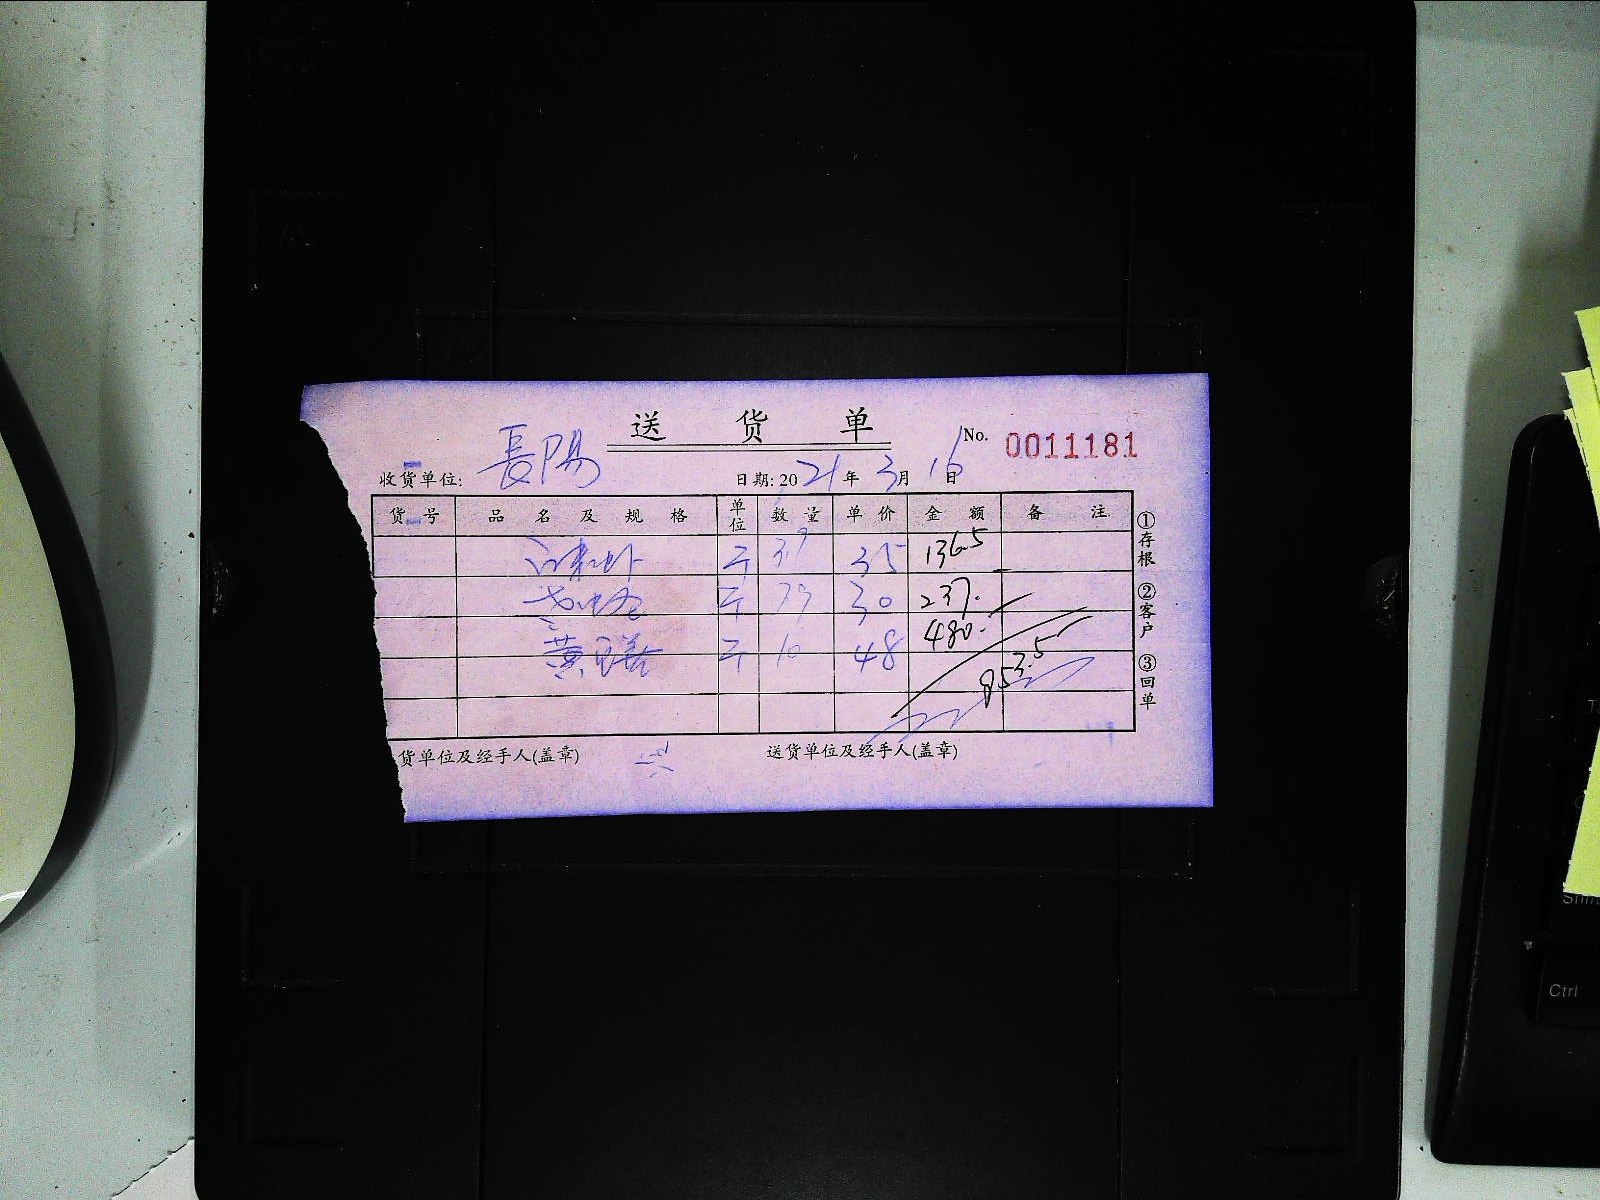 送 货 单
No. 0011181
收货单位: 長陽
日期: 2021年 3月 16日
货 号 品 名 及 规 格 单位 数 量 单 价 金 额 备 注
斤 3.9 35 136.5
斤 7.9 30 237.
黄 斤 10 48 480.
853.5
货单位及经手人(盖章) 送货单位及经手人(盖章)
①存根 ②客户 ③回单
A5
Ctrl